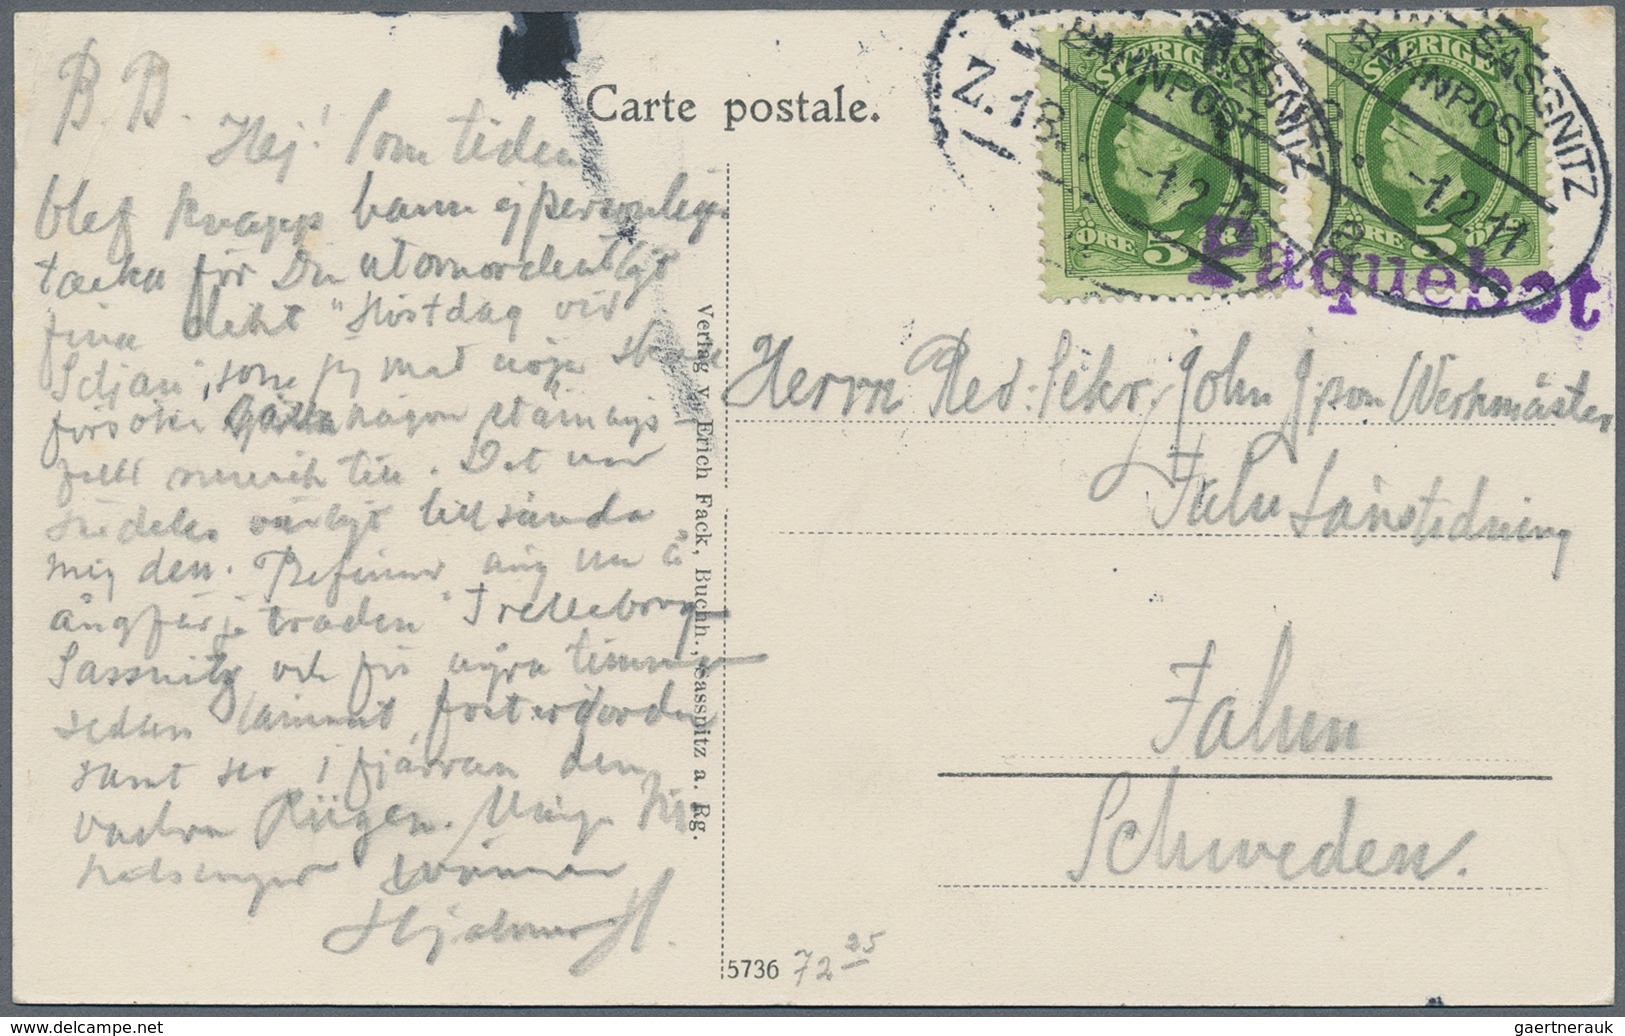 B B.
Hej! Som tiden
blef knapp hann ej personligen
tacka för Din utomordentligt
fina dikt "Höstdag vid
Siljan", som jag med nöje skall
försöka någon stämnings-
full musik till. Det var
särdeles vänligt tillsända
mig den. Befinner mig nu å
ångfärjetraden Trelleborg
Sassnitz och för några timmar
sedan lämnat fosterjorden
samt ser i fjärran den
vackra Rügen. Många
hälsningar vännen
Hjalmar H.
Carte postale.
Verlag v. Erich Fack, Buchh., Sassnitz a. Rg.
5736
72 25
SASSNITZ
BAHNPOST
Z. 18
-1.2.11
SASSNITZ
BAHNPOST
-1.2.11
SVERIGE
ÖRE 5
SVERIGE
ÖRE 5 ÖRE
Paquebot
Herrn Red. Sekr. John Jpson Werkmäster
Falu Länstidning
Falun
Schweden.
gaertnerauk
www.delcampe.net